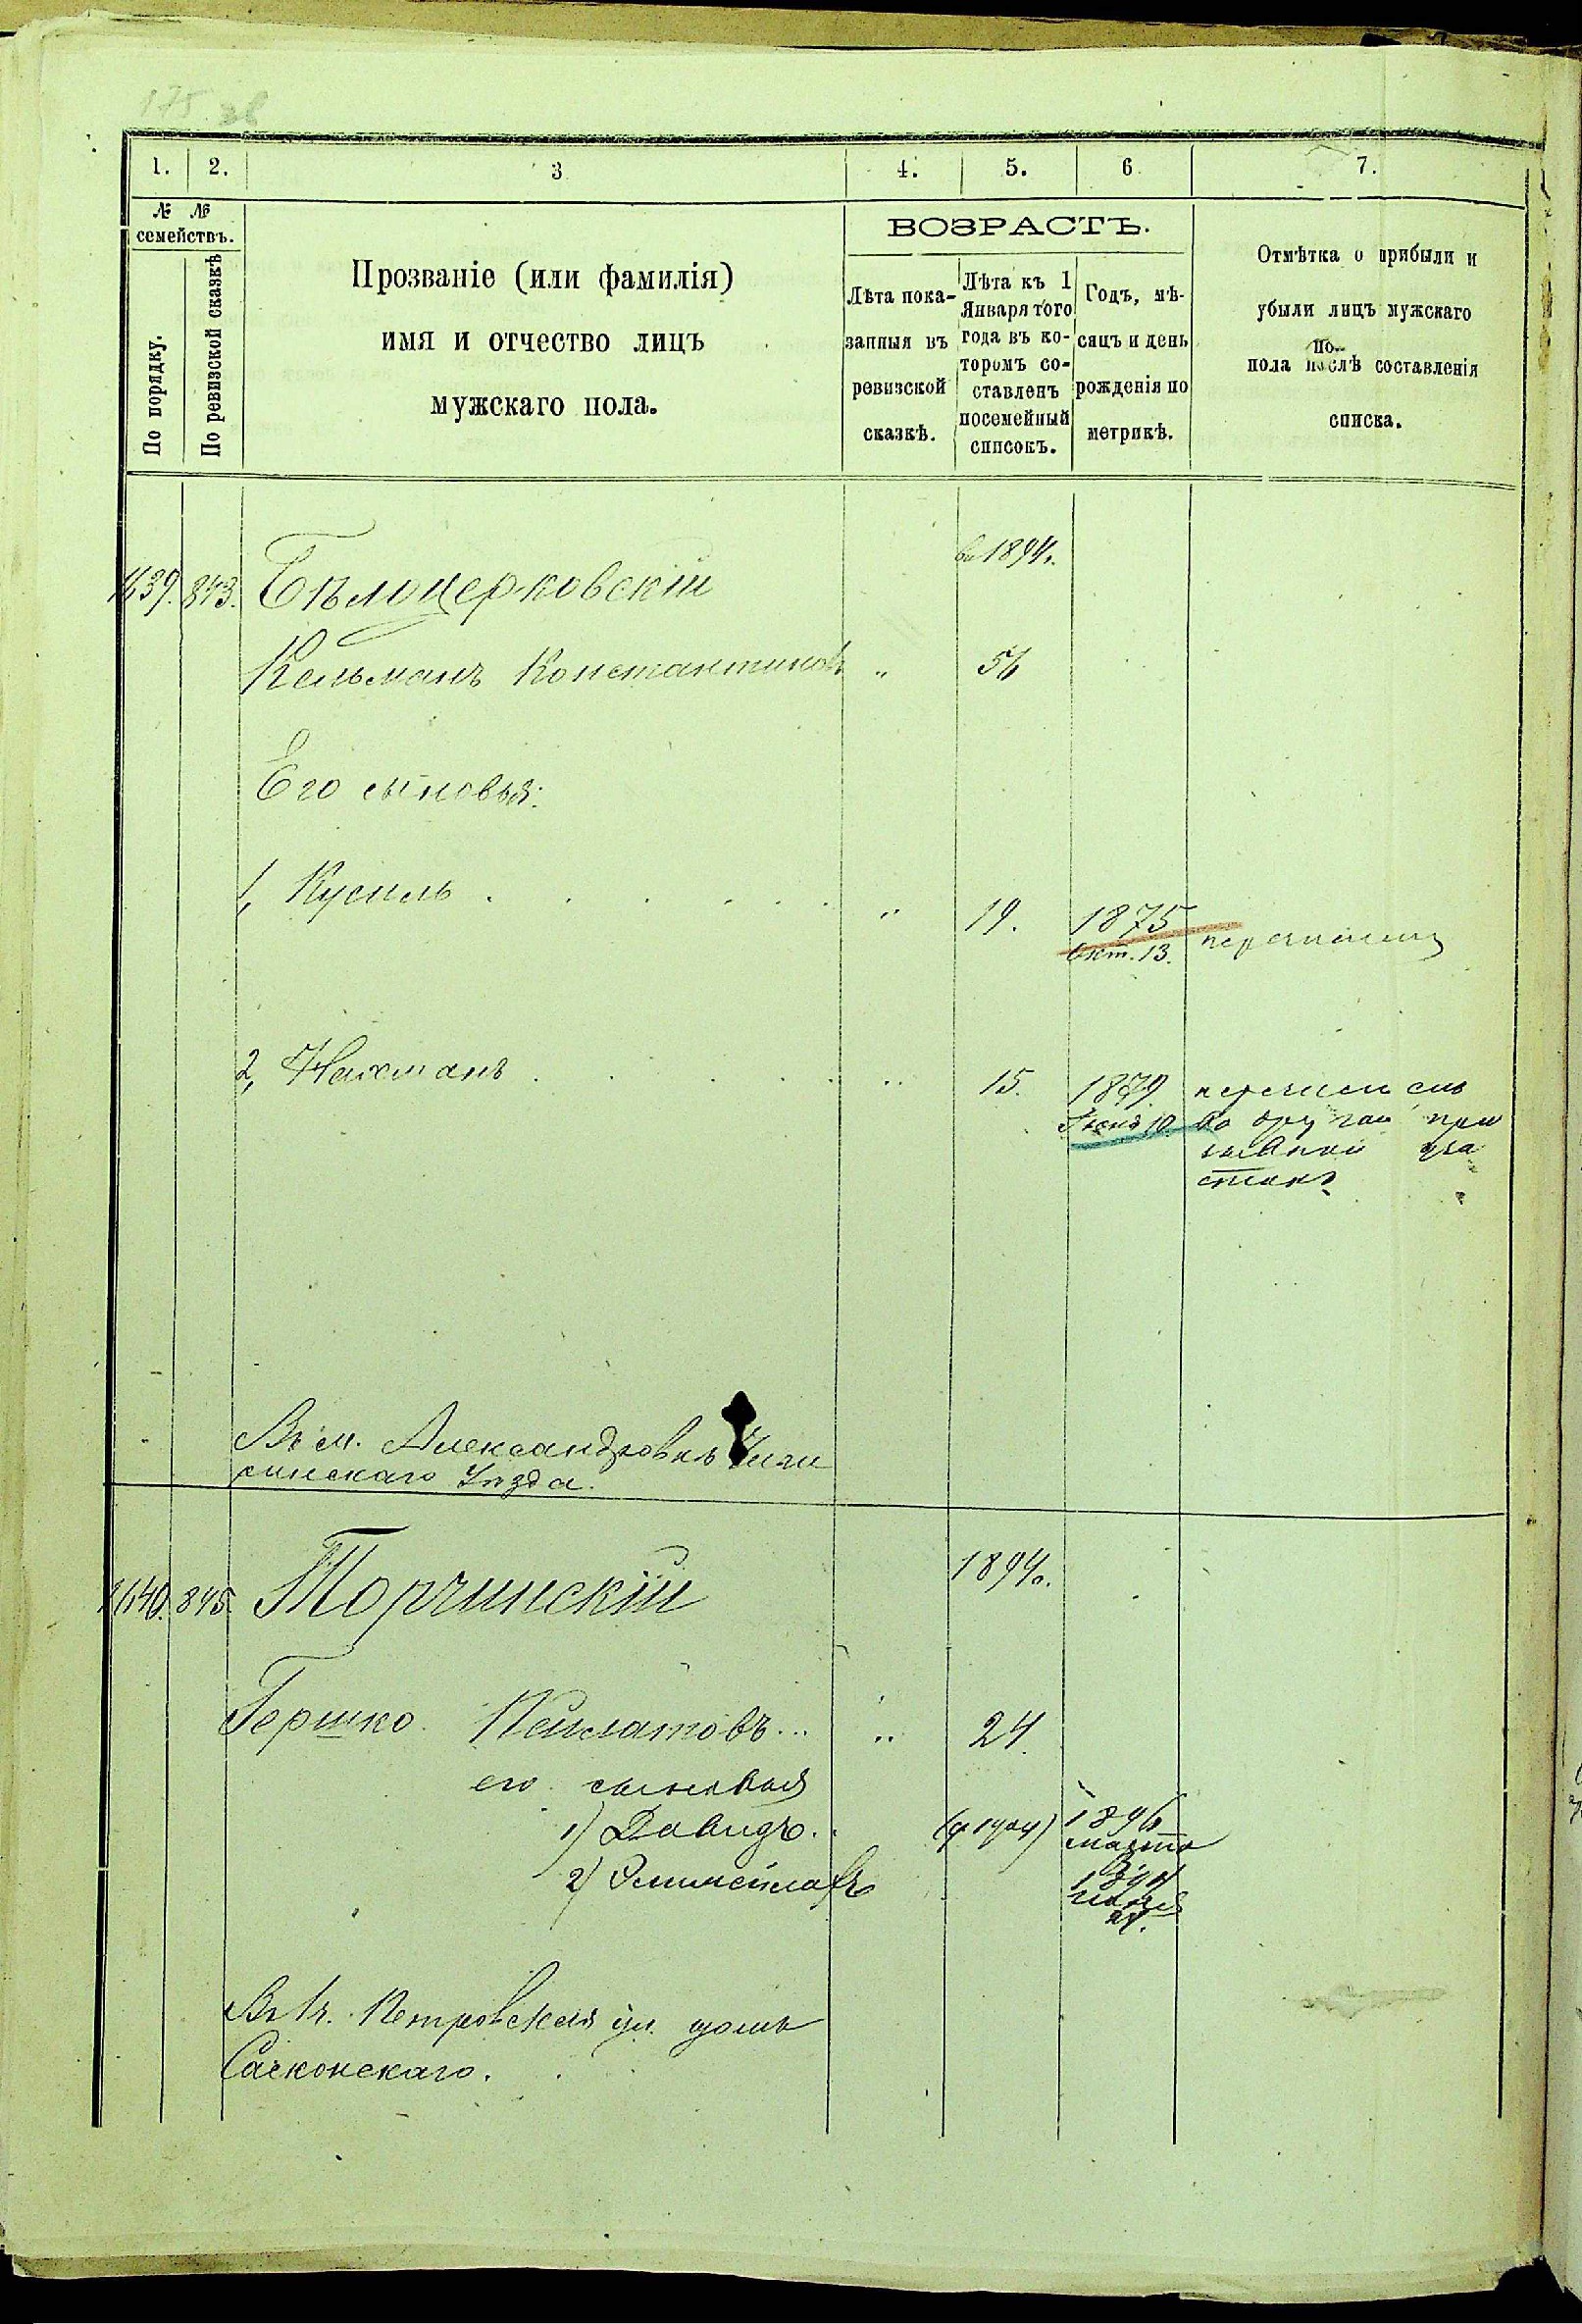 175 зв
1. 2. 3 4. 5. 6 7.
№ № семействъ.
По порядку.
По ревизской сказкѣ
Прозваніе (или фамилія)
имя и отчество лицъ
мужскаго пола.
ВОЗРАСТЪ.
Лѣта пока-
занныя въ
ревизской
сказкѣ.
Лѣта къ 1
Января того
года въ ко-
торомъ со-
ставленъ
посемейный
списокъ.
Годъ, мѣ-
сяцъ и день
рожденія по
метрикѣ.
Отмѣтка о прибыли и
убыли лицъ мужскаго
по-
пола послѣ составленія
списка.
въ 1894г.
1639. 843. Бѣлоцерковскій
Кельманъ Константиновъ „ 56
Его сыновья:
1, Кусиль . . . . . . „ 19. 1875
Окт. 13. перечисленъ
2, Нахманъ . . . . . „ 15. 1879
Іюня 10. перечисленъ
во другой при
зывной уча
стокъ
Въ м. Александровкѣ Чиги
ринскаго Уѣзда.
1894г.
1640. 845. Торчинскій
Гершко Пейсатовъ... „ 24.
его сыновья
1) Давидъ. 1896
марта
2)
1897
21.
Въ г. Петровская ул. домъ